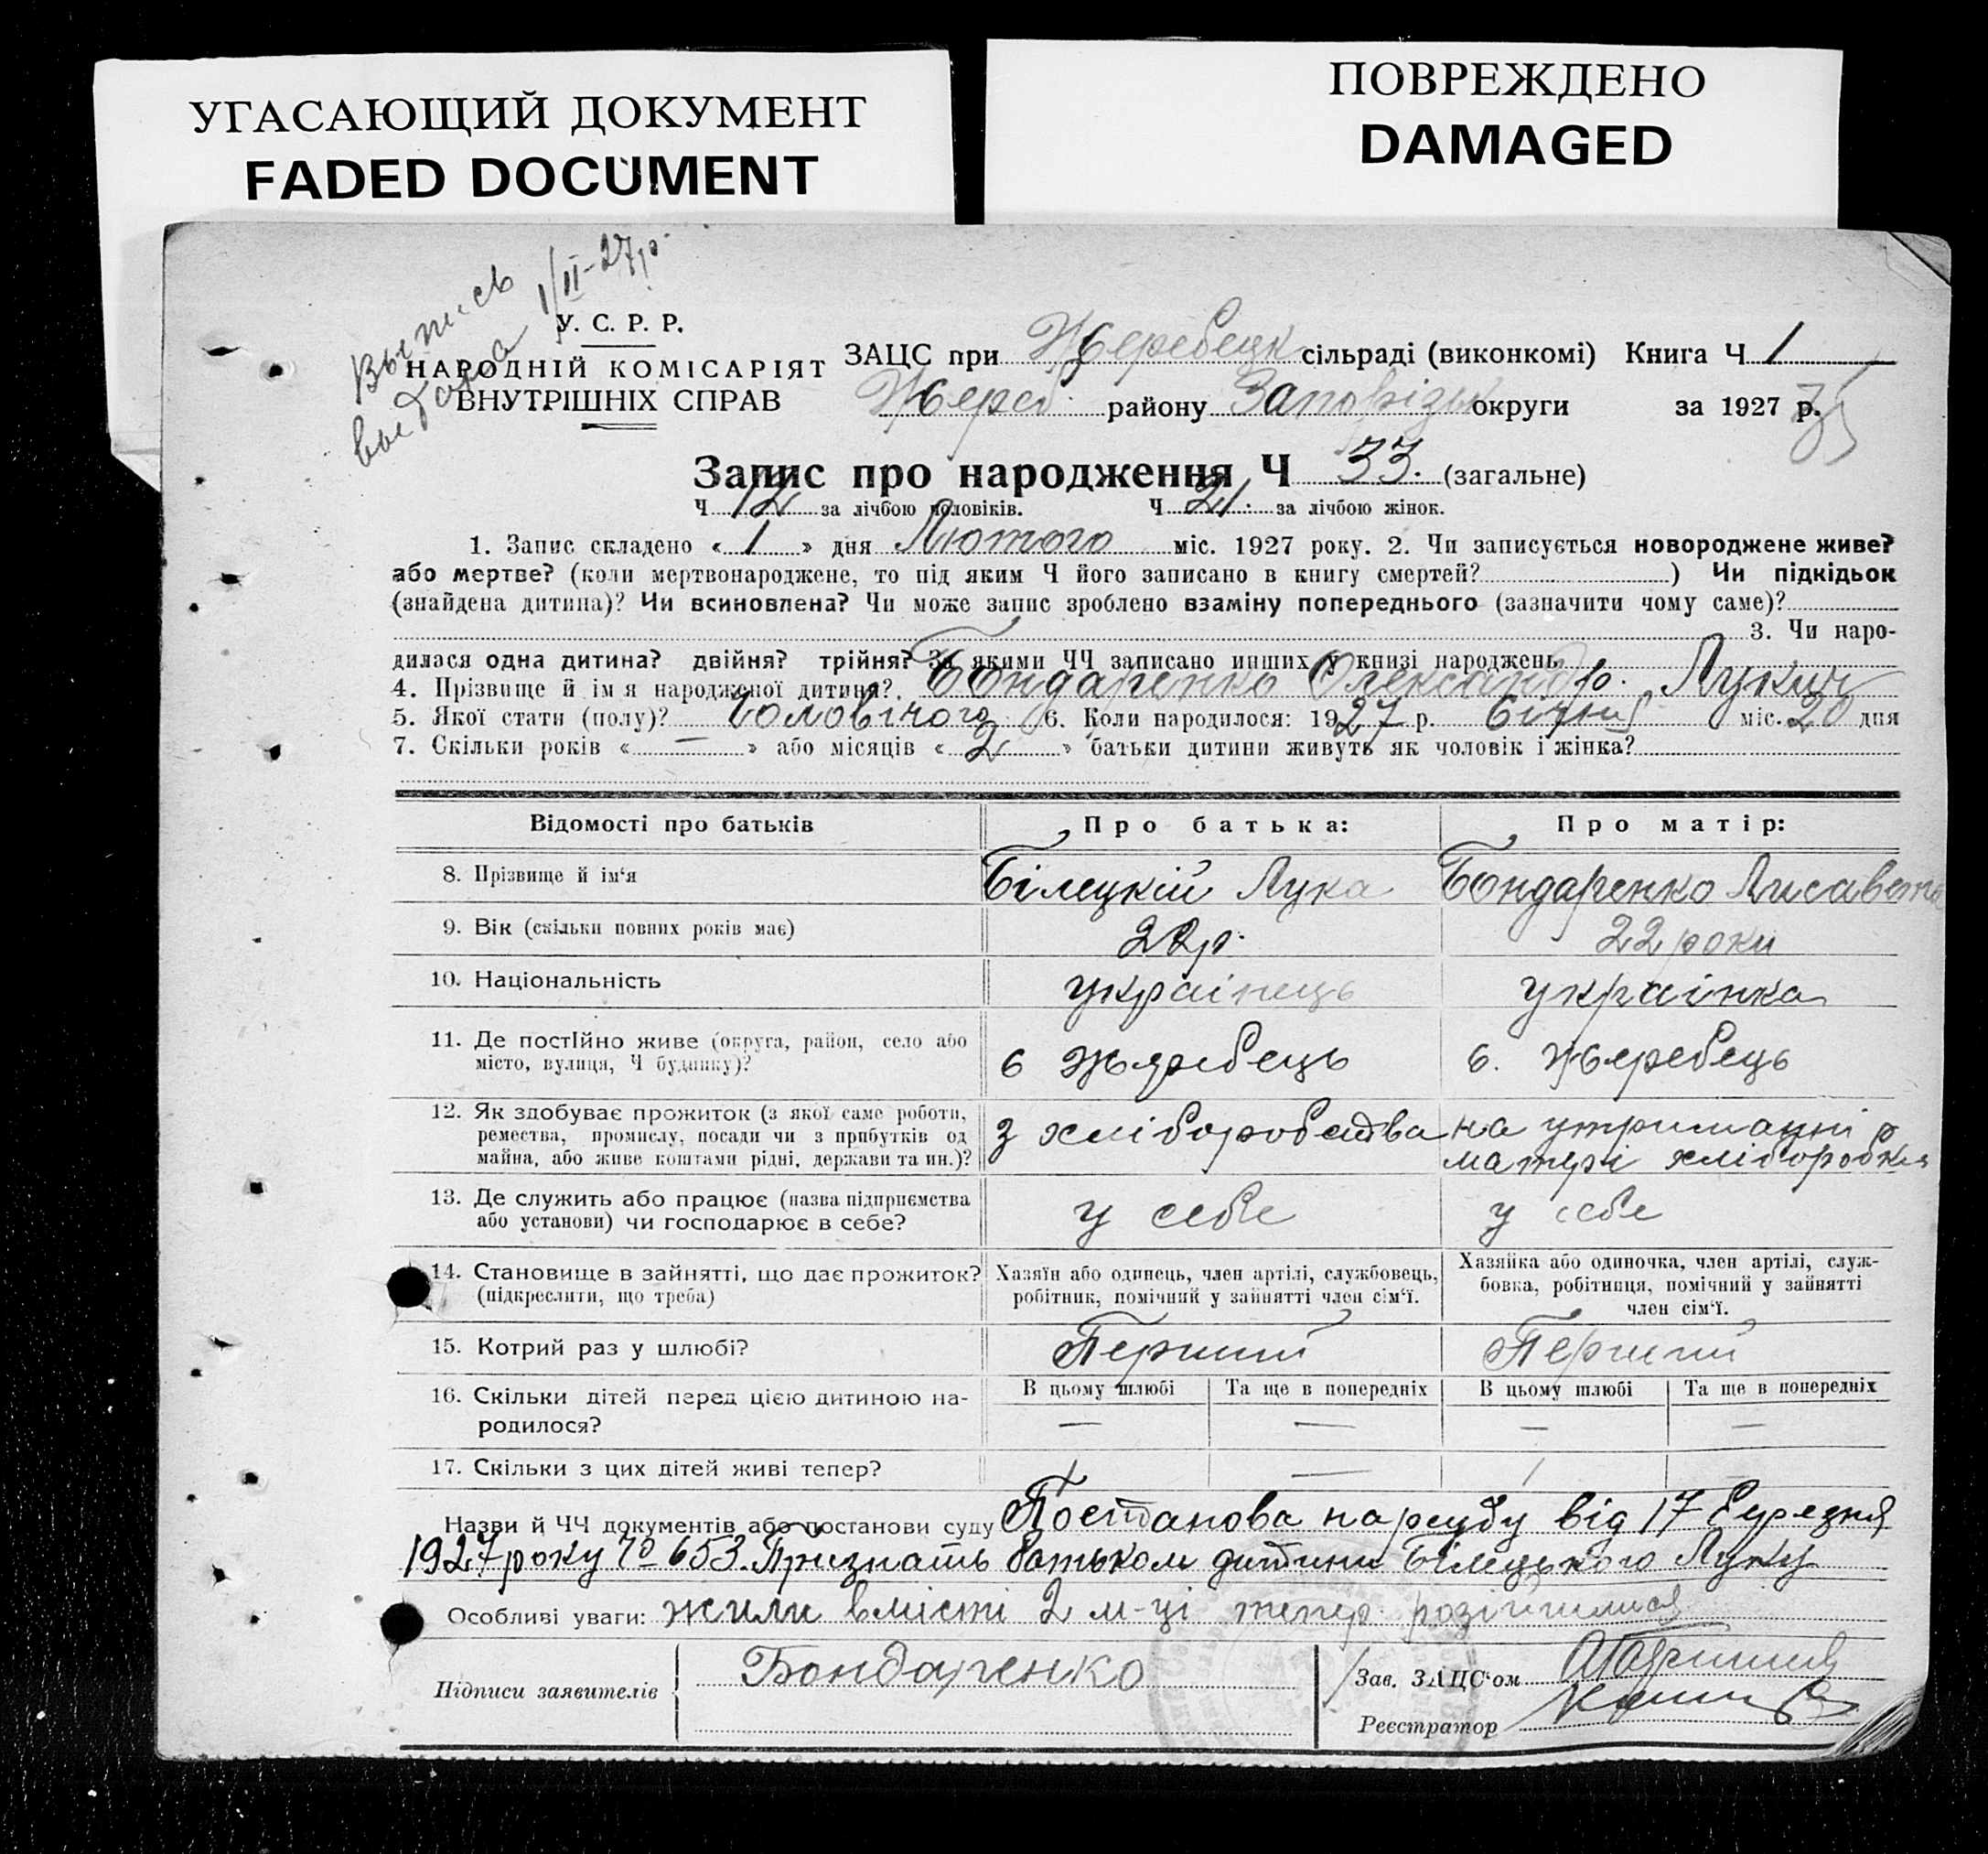 УГАСАЮЩИЙ ДОКУМЕНТ
FADED DOCUMENT
ПОВРЕЖДЕНО
DAMAGED
Выпись
выдана 1/II-27р.
У. С. Р. Р.
НАРОДНІЙ КОМІСАРІЯТ
ВНУТРІШНІХ СПРАВ
ЗАЦС при Жеребецк сільраді (виконкомі) Книга Ч 1
Жереб. району Запорізьк округи за 1927 р.
Запис про народження Ч 33. (загальне)
Ч 12 за лічбою чоловіків. Ч 21. за лічбою жінок.
1. Запис складено « 1 » дня Лютого міс. 1927 року. 2. Чи записується новороджене живе?
або мертве? (коли мертвонароджене, то під яким Ч його записано в книгу смертей? ) Чи підкідьок
(знайдена дитина)? Чи всиновлена? Чи може запис зроблено взаміну попереднього (зазначити чому саме)?
3. Чи наро-
дилася одна дитина? двійня? трійня? За якими ЧЧ записано инших у книзі народжень
4. Прізвище й ім я народженої дитини? Бондаренко Олександр. Лукич
5. Якої стати (полу)? Чоловічого 6. Коли народилося: 1927 р. Січня міс. 20 дня
7. Скільки років « — » або місяців « 2 » батьки дитини живуть як чоловік і жінка?
Відомості про батьків Про батька: Про матір:
8. Прізвище й ім'я Білецкій Лука Бондаренко Лисавета
9. Вік (скільки повних років має) 22р. 22 роки
10. Національність українець українка
11. Де постІйно живе (округа, район, село або
місто, вулиця, Ч будинку)? с Жеребець с. Жеребець
12. Як здобуває прожиток (з якої саме роботи,
ремества, промислу, посади чи з прибутків од
майна, або живе коштами рідні, держави та ин.)? з хліборобства на утриманні
матері хлібороб
13. Де служить або працює (назва підприємства
або установи) чи господарює в себе? у себе у себе
14. Становище в зайнятті, що дає прожиток?
(підкреслити, що треба)
Хазяїн або одинець, член артілі, службовець,
робітник, помічний у зайнятті член сім'ї.
Хазяйка або одиночка, член артілі, служ-
бовка, робітниця, помічний у зайнятті
член сім'ї.
15. Котрий раз у шлюбі? Перший Перший
16. Скільки дітей перед цією дитиною на-
родилося?
В цьому шлюбі Та ще в попередніх В цьому шлюбі Та ще в попередніх
— — — —
17. Скільки з цих дітей живі тепер? / — /
Назви й ЧЧ документів або постанови суду Постанова нарсуду від 17 Березня
1927 року № 653. Признать батьком дитини Білецького Луку
Особливі уваги: жили вмісті 2 м-ці тепер розійшлися
Підписи заявителів Бондаренко
Зав. ЗАЦС'ом
Реєстратор